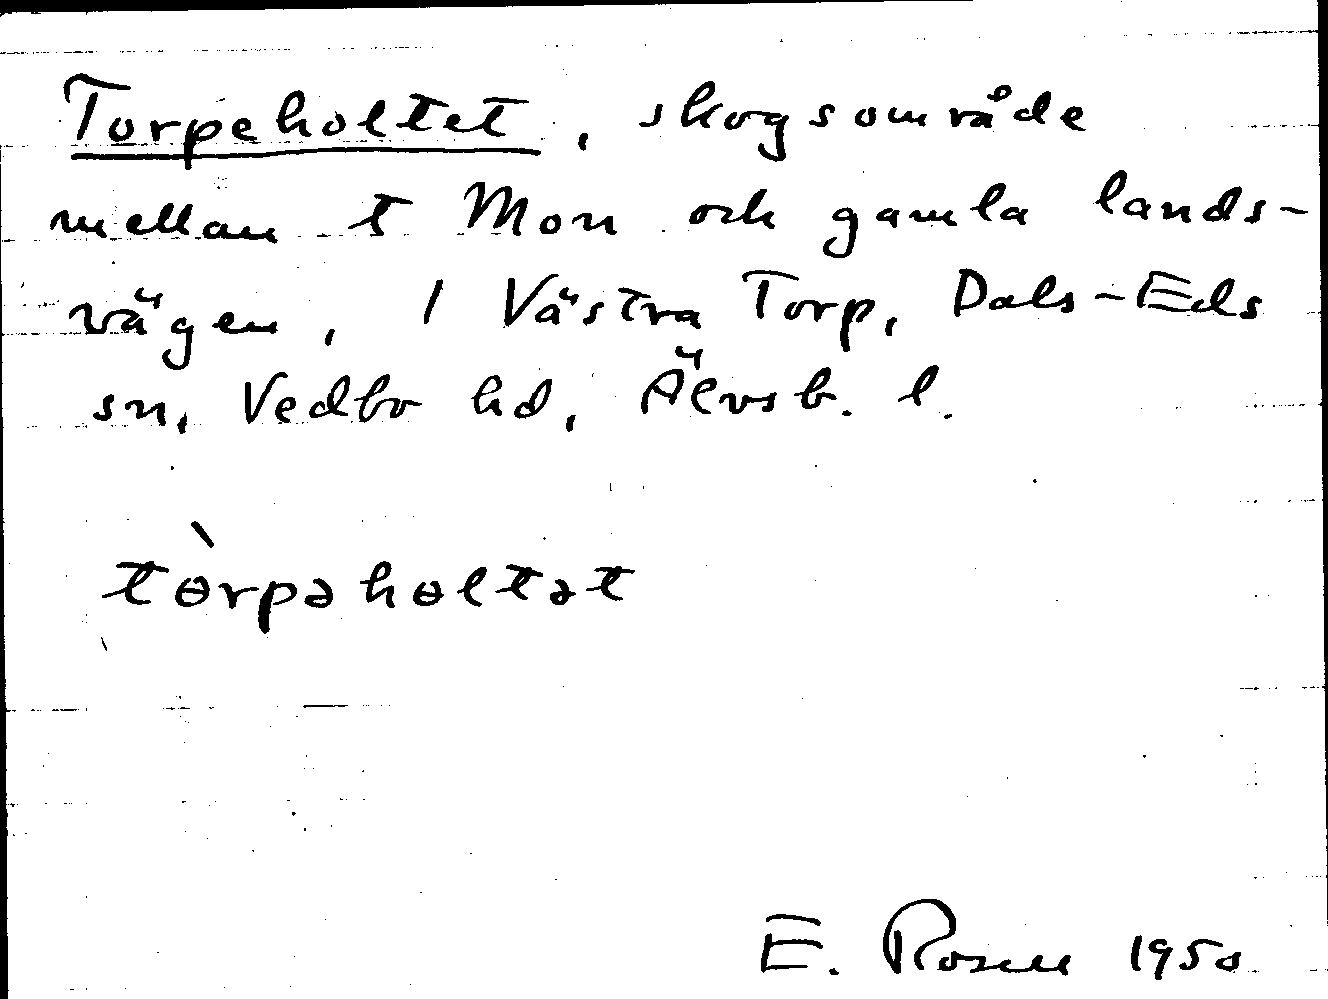 Torpeholtet, skogsområde
mellan t Mon och gamla lands-
vägen, / Västra Torp, Dals-Eds
sn, Vedbo hd, Älvsb. l.
tɵ̀rpəhɵltət
E. Rosell 1950